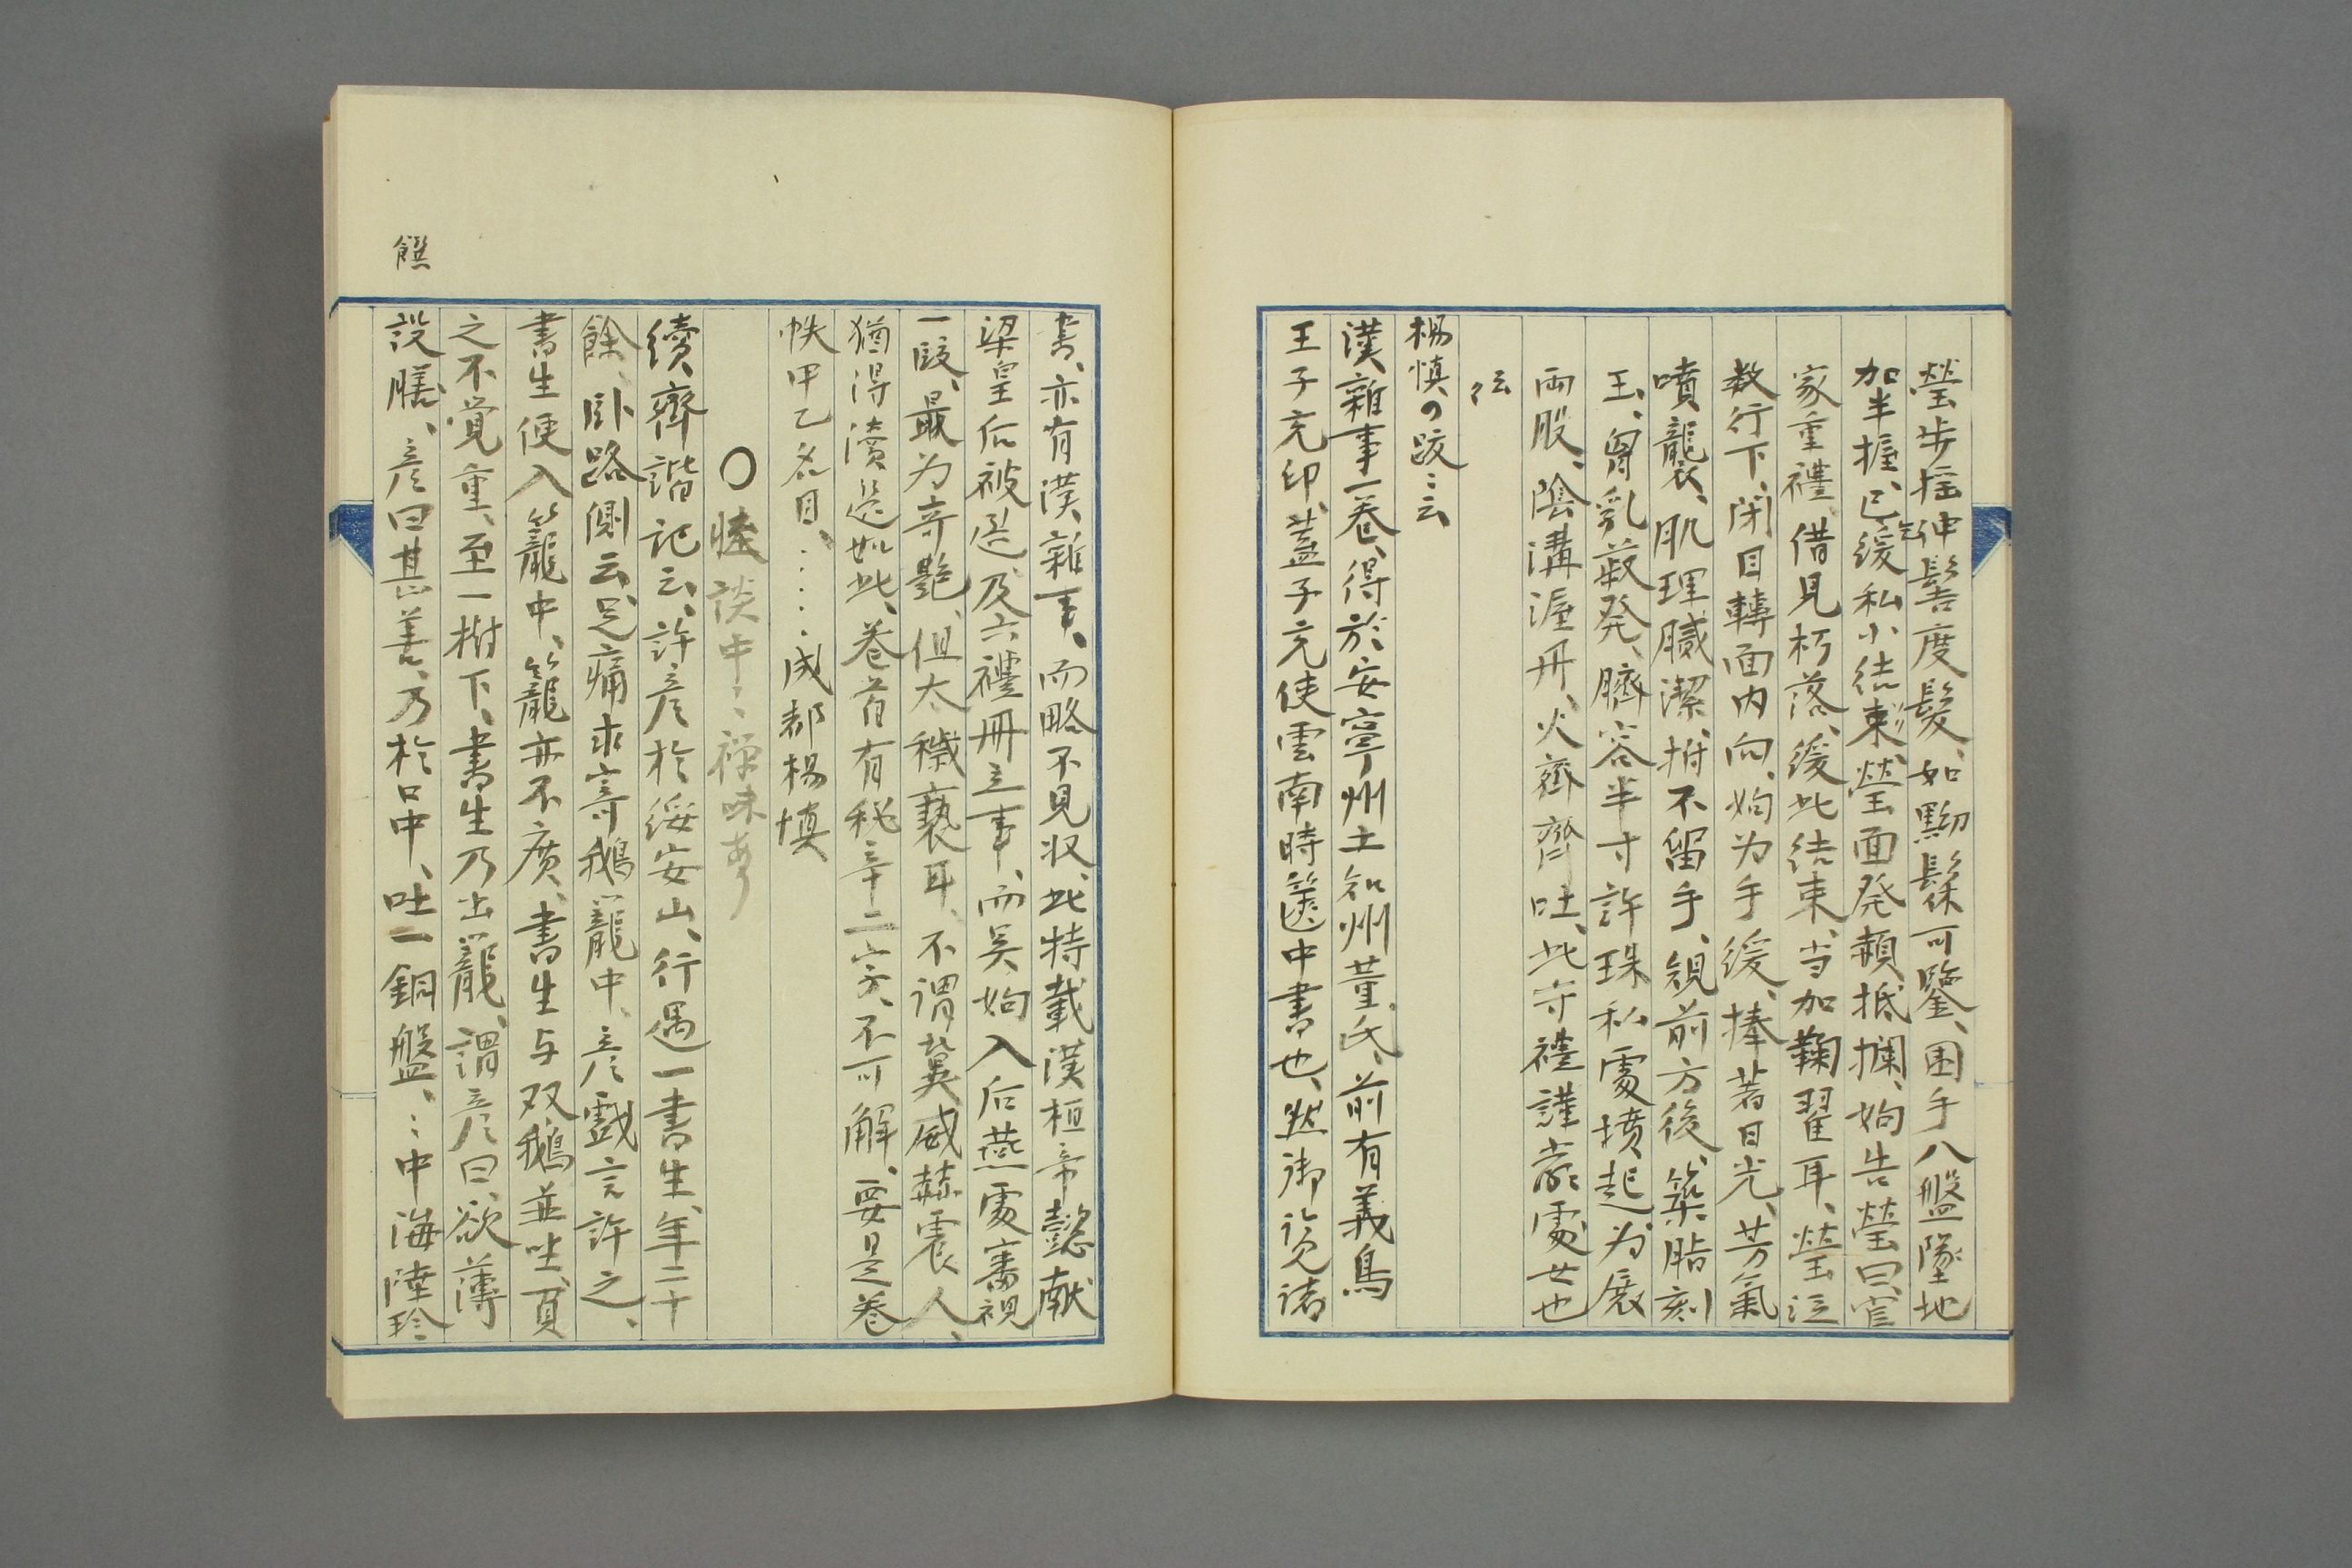 瑩歩揺伸髻度髮、如黝髹可鑒、囲手八盤墜地
加半握、已緩私小結束、瑩面発赬抵攔、姁告瑩曰、官
家重禮、借見朽落、緩此結束、当加鞠翟耳、瑩泣
数行下、閉目轉面内向、姁為手緩、捧著日光、芳氣
噴襲、肌理膩潔、拊不留手、規前方後、築脂刻
玉、胷乳菽発、臍容半寸許珠、私處墳起、为展
両股、陰溝渥丹、火齊欲吐、此守禮謹嚴處女也
云々
楊慎の跋に云
漢雑事一巻、得於安寧州土知州董氏、前有義烏
王子充印、蓋子充使雲南時篋中書也、然御覧諸
書、亦有漢雑事、而略不見収、此特載漢桓帝懿献
梁皇后被選、及六禮冊立事、而吴姁入后燕處審視
一段、最为奇艶、但太穢褻耳、不謂冀威赫震人、
猶得瀆選如此、巻首有秘辛二字、不可解、要是巻
帙甲乙名目、……成都楊慎
○怪談中ニ禅味あり
續齊諧記云、許彦於綏安山、行遇一書生、年二十
餘、臥路側、云足痛求寄鵝籠中、彦戯言許之、
書生便入籠中、籠亦不広、書生与双鵝並坐、負
之不覚重、至一樹下、書生乃出籠、謂彦曰、欲薄
設膳、彦曰甚善、乃於口中、吐一銅盤、ヽ中海陸珍
饌